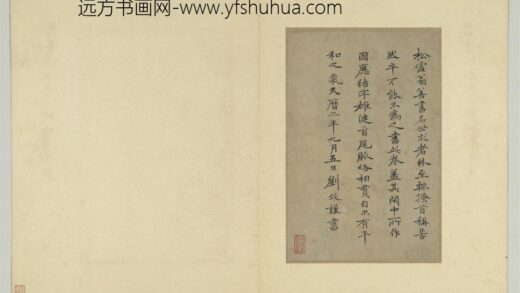 远方书画网-www.yfshuhua.com
松雪翁善書名世求者終至輙撥首稱苦
然卒不能不為之書此卷蓋其閑中所作
因應結字雄健首尾脉絡相貫自不有平
和之氣天曆二年九月五日劉致謹書